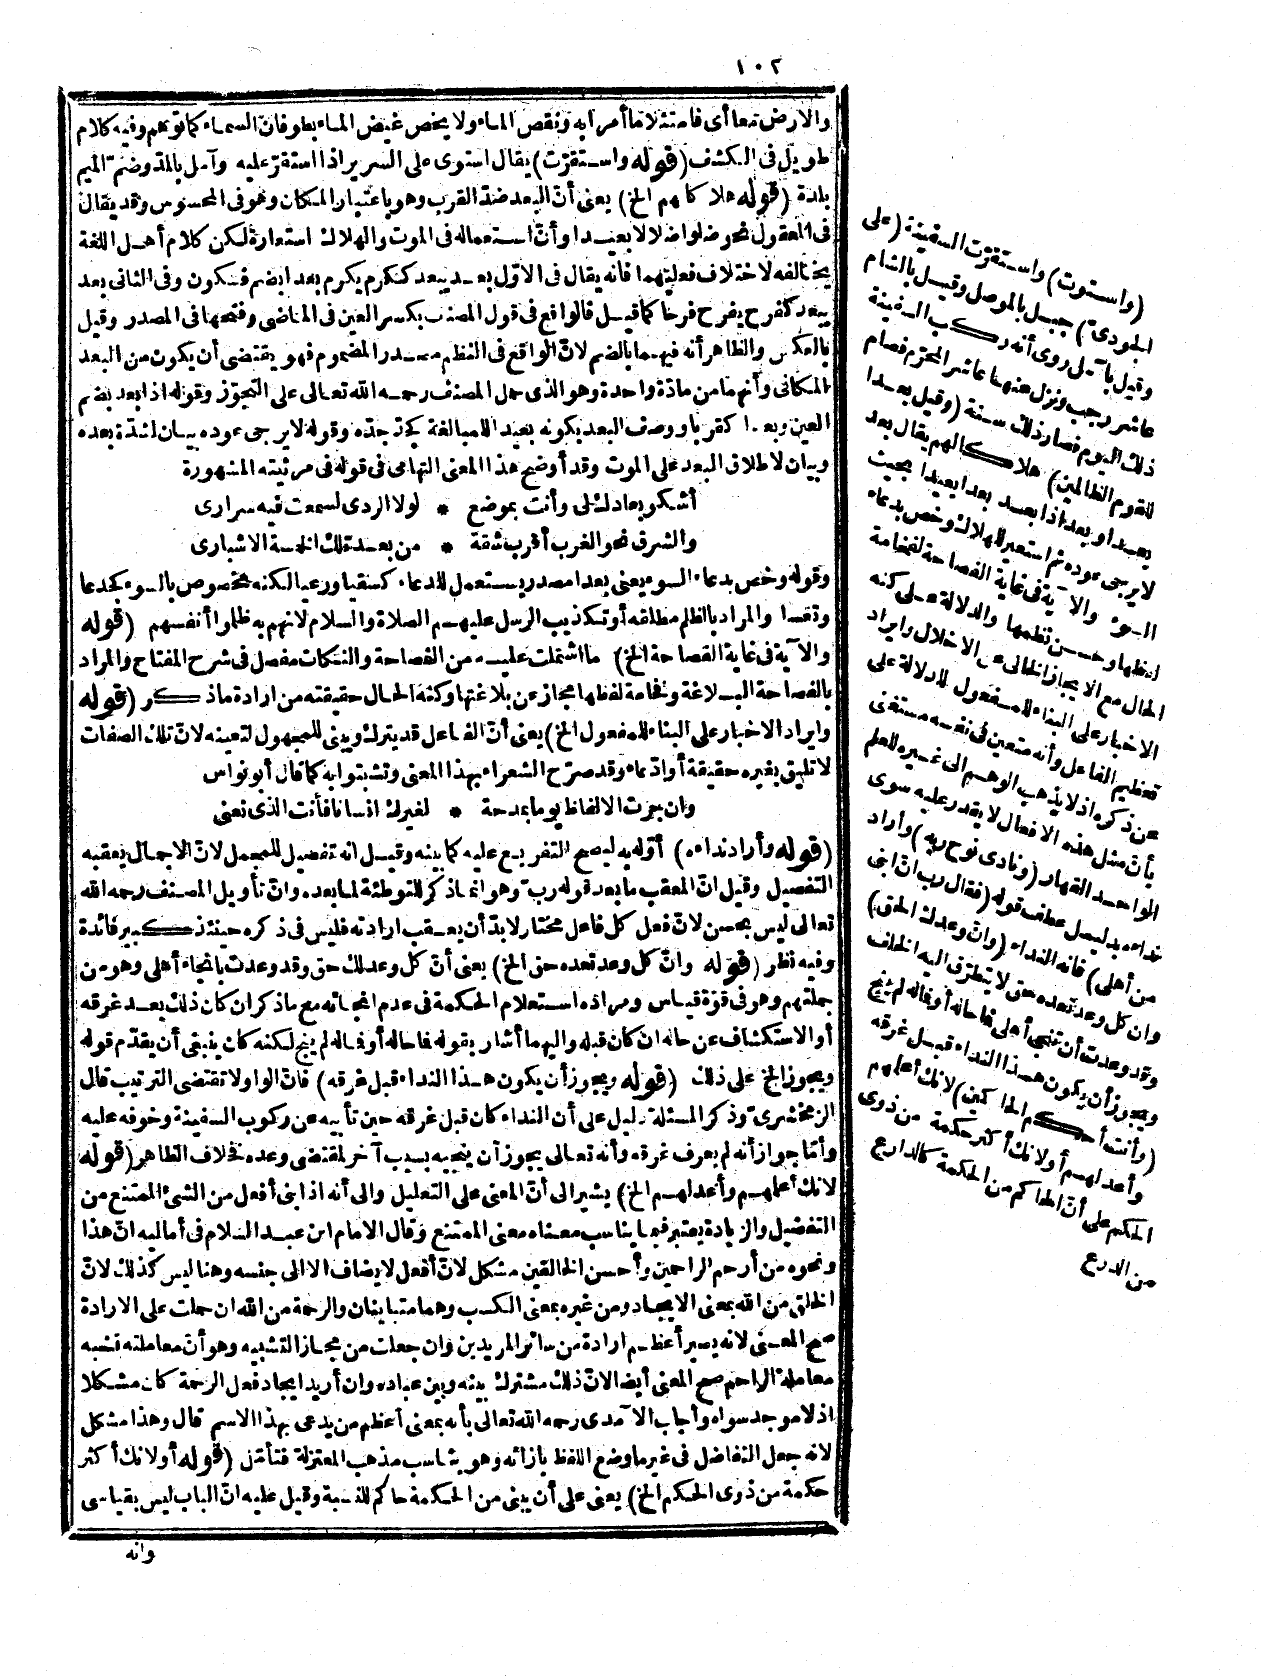 ١٠٢
والارض تبعا أى فامتثلا ما أمرا به ونقص الماء ولا يخص غيض الماء بطوفان السماء كما توهم وفيه كلام
طويل فى الكشف (قوله واستقرّت) يقال استوى على السرير اذا استقرّ عليه وآمل بالمدّ وضم الميم
بلدة (قوله هلاكا لهم الخ) يعنى أنّ البعد ضدّ القرب وهو باعتبار المكان وهو فى المحسوس وقد يقال
فى المعقول نحو ضلوا ضلالا بعيدا وأنّ استعماله فى الموت والهلاك استعارة لكن كلام أهل اللغة
يخالفه لاختلاف فعليهما فانه يقال فى الاوّل بعد يبعد ككرم يكرم بعدا بضم فسكون وفى الثانى بعد
يبعد كفرح يفرح فرحا كما قيل فالواقع فى قول المصنف بكسر العين فى الماضى وفتحها فى المصدر وقيل
بالعكس والظاهر أنه فيهما بالضم لانّ الواقع فى النظم مصدر المضموم فهو يقتضى أن يكون من البعد
المكانى وأنهما من مادّة واحدة وهو الذى حمل المصنف رحمه الله تعالى على التجوّز وقوله اذا بعد بضم
العين وبعدا كقربا ووصف البعد بكونه بعيد اللمبالغة كجدّ جدّه وقوله لا يرجى عوده بيان لشدّة بعده
وبيان لاطلاق البعد على الموت وقد أوضح هذا المعنى التهامى فى قوله فى مرثيته المشهورة
أشكو بعادك لى وأنت بموضع * لولا الردى لسمعت فيه سرارى
والشرق نحو الغرب أقرب شقة * من بعد تلك الخمسة الاشبارى
وقوله وخص بدعاء السوء يعنى بعدا مصدر يستعمل للدعاء كسقيا ورعيا لكنه مخصوص بالسوء كجدعا
وتعسا والمراد بالظلم مطلقه أو تكذيب الرسل عليهم الصلاة والسلام لانهم به ظلموا أنفسهم (قوله
والآية فى غاية الفصاحة الخ) ما اشتملت عليه من الفصاحة والنكات مفصل فى شرح المفتاح والمراد
بالفصاحة البلاغة وفخامة لفظها مجاز عن بلاغتها وكنه الحال حقيقته من ارادة ما ذكر (قوله
وايراد الاخبار على البناء للمفعول الخ) يعنى أنّ الفاعل قد يترك ويبنى للمجهول لتعينه لانّ تلك الصفات
لا تليق بغيره حقيقة أو ادّعاء وقد صرّح الشعراء بهذا المعنى وتشبثوا به كما قال أبو نواس
وان جرت الالفاظ يوما بمدحة * لغيرك انسانا فأنت الذى نعنى
(قوله وأراد نداءه) أوّله به ليصح التفريع عليه كما بينه وقيل انه تفصيل للمجمل لانّ الاجمال يعقبه
التفصيل وقيل انّ المعقب ما بعد قوله ربّ وهو انما ذكر للتوطئة لما بعده وانّ تأويل المصنف رحمه الله
تعالى ليس بحسن لانّ فعل كل فاعل مختار لا بدّ أن يعقب ارادته فليس فى ذكره حينئذ كبير فائدة
وفيه نظر (قوله وانّ كل وعد تعده حق الخ) يعنى أنّ كل وعدك حق وقد وعدت بانجاء أهلى وهو من
جملتهم وهو فى قوّة قياس ومراده استعلام الحكمة فى عدم انجائه مع ما ذكر ان كان ذلك بعد غرقه
أو الاستكشاف عن حاله ان كان قبله واليهما أشار بقوله فما حاله أو فما له لم ينج لكنه كان ينبغى أن يقدّم قوله
ويجوز الخ على ذلك (قوله ويجوز أن يكون هذا النداء قبل غرقه) فانّ الواو لا تقتضى الترتيب قال
الزمخشرىّ وذكر المسئلة دليل على أن النداء كان قبل غرقه حين تأبيه عن ركوب السفينة وخوفه عليه
وأمّا جواز أنه لم يعرف غرقه وأنه تعالى يجوز أن ينجيه بسبب آخر لمقتضى وعده فخلاف الظاهر (قوله
لانك أعلمهم وأعدلهم الخ) يشير الى أنّ المعنى على التعليل والى أنه اذا بنى أفعل من الشئ الممتنع من
التفضيل والزيادة يعتبر فيما يناسب معناه معنى الممتنع وقال الامام ابن عبد السلام فى أماليه انّ هذا
ونحوه من أرحم الراحمين وأحسن الخالقين مشكل لانّ أفعل لا يضاف الا الى جنسه وهنا ليس كذلك لانّ
الخلق من الله بمعنى الايجاد ومن غيره بمعنى الكسب وهما متباينان والرحمة من الله ان حملت على الارادة
صح المعنى لانه يصير أعظم ارادة من سائر المريدين وان جعلت من مجاز التشبيه وهو أنّ معاملته تشبه
معاملة الراحم صح المعنى أيضا لانّ ذلك مشترك بينه وبين عباده وان أريد ايجاد فعل الرحمة كان مشكلا
اذ لا موجد سواه وأجاب الآمدى رحمه الله تعالى بأنه بمعنى أعظم من يدعى بهذا الاسم قال وهذا مشكل
لانه جعل التفاضل فى غير ما وضع اللفظ بازائه وهو يناسب مذهب المعتزلة فتأمّل (قوله أو لانك أكثر
حكمة من ذوى الحكم الخ) يعنى على أن يبنى من الحكمة حاكم للنسبة وقيل عليه انّ الباب ليس بقياسى
وانه
(واستوت) واستقرّت السفينة (على
الجودىّ) جبل بالموصل وقيل بالشام
وقيل بآمل روى أنه ركب السفينة
عاشر رجب ونزل عنها عاشر المحرّم فصام
ذلك اليوم فصار ذلك سنة (وقيل بعدا
للقوم الظالمين) هلاكا لهم يقال بعد
بعدا وبعدا اذا بعد بعدا بعيدا بحيث
لا يرجى عوده ثم استعير للهلاك وخص بدعاء
السوء والآية فى غاية الفصاحة لفخامة
لفظها وحسن نظمها والدلالة على كنه
الحال مع الايجاز الخالى عن الاخلال وايراد
الاخبار على البناء للمفعول للدلالة على
تعظيم الفاعل وأنه متعين فى نفسه مستغنى
عن ذكره اذ لا يذهب الوهم الى غيره للعلم
بأنّ مثل هذه الافعال لا يقدر عليه سوى
الواحد القهار (ونادى نوح ربه) وأراد
نداءه بدليل عطف قوله (فقال رب انّ ابنى
من أهلى) فانه النداء (وانّ وعدك الحق)
وان كل وعد تعده حق لا يتطرّق اليه الخلف
وقد وعدت أن تنجى أهلى فما حاله أو فما له لم ينج
ويجوز أن يكون هذا النداء قبل غرقه
(وأنت أحكم الحاكمين) لانك أعلمهم
وأعدلهم أو لانك أكثر حكمة من ذوى
الحكم على أنّ الحاكم من الحكمة كالدارع
من الدرع